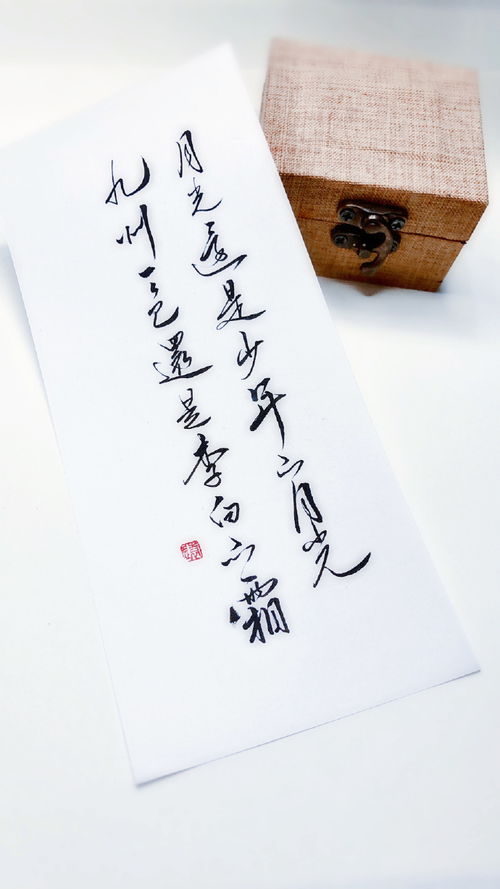 月光還是少年的月光
九州一色還是李白的霜